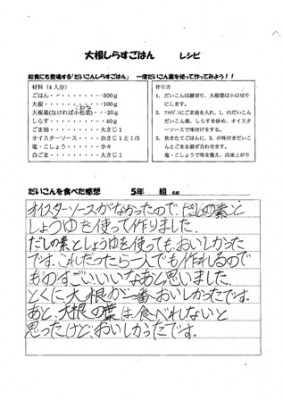 大根しらすごはん　　レシピ
給食にも登場する「だいこんしらすごはん」　一度だいこん葉を使って作ってみよう！！
材料（4人分）
ごはん・・・・・・・・500g
大根・・・・・・・・・100g
大根葉(なければ小松菜)・・20g
しらす・・・・・・・・40g
ごま油・・・・・・・・大さじ1
オイスターソース・・・おさじ1と1/3
塩・こしょう・・・・・少々
白ごま・・・・・・・・大さじ1
作り方
1、だいこんは細切り、大根葉は小口切りにします。
2、ﾌﾗｲﾊﾟﾝにごま油を入れ、1、のだいこん
だいこん葉、しらすを炒め、オイスターソースで味付けをする。
3、炊きたてごはんに、2、の味付きだいこんと白ごまを混ぜる。
塩・こしょうで味を整え、出来上がり
だいこんを食べた感想　　5年　　組　名前
オイスターソースがなかったので、だしの素と
しょうゆを使って作りました。
だしの素としょうゆを使っても、おいしかった
です。これだったら一人でも作れるので
ものすごいいいなあと思いました。
とくに大根が一番おいしかったです。
あと、大根の葉は食べれないと
思ったけど、おいしかったです。